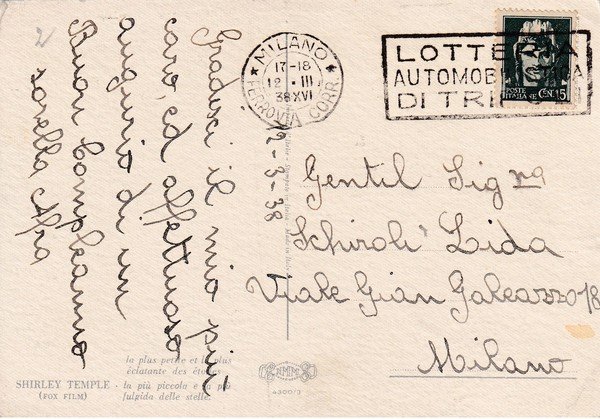 2
Gradisci il mio più
caro, ed affettuoso
augurio di un
Buon Compleanno
sorella Afra
12-3-38
MILANO
17-18
12 · III
38XVI
FERROVIA CORR.
LOTTERIA
AUTOMOBILISTICA
DI TRIPOLI
POSTE
ITALIANE
CENT. 15
Gentil Sig na
Schiroli Lida
Viale Gian Galeazzo-18
Milano
la plus petite et la plus
éclatante des étoiles
SHIRLEY TEMPLE - la più piccola e la più
(FOX FILM) fulgida delle stelle.
4300/3